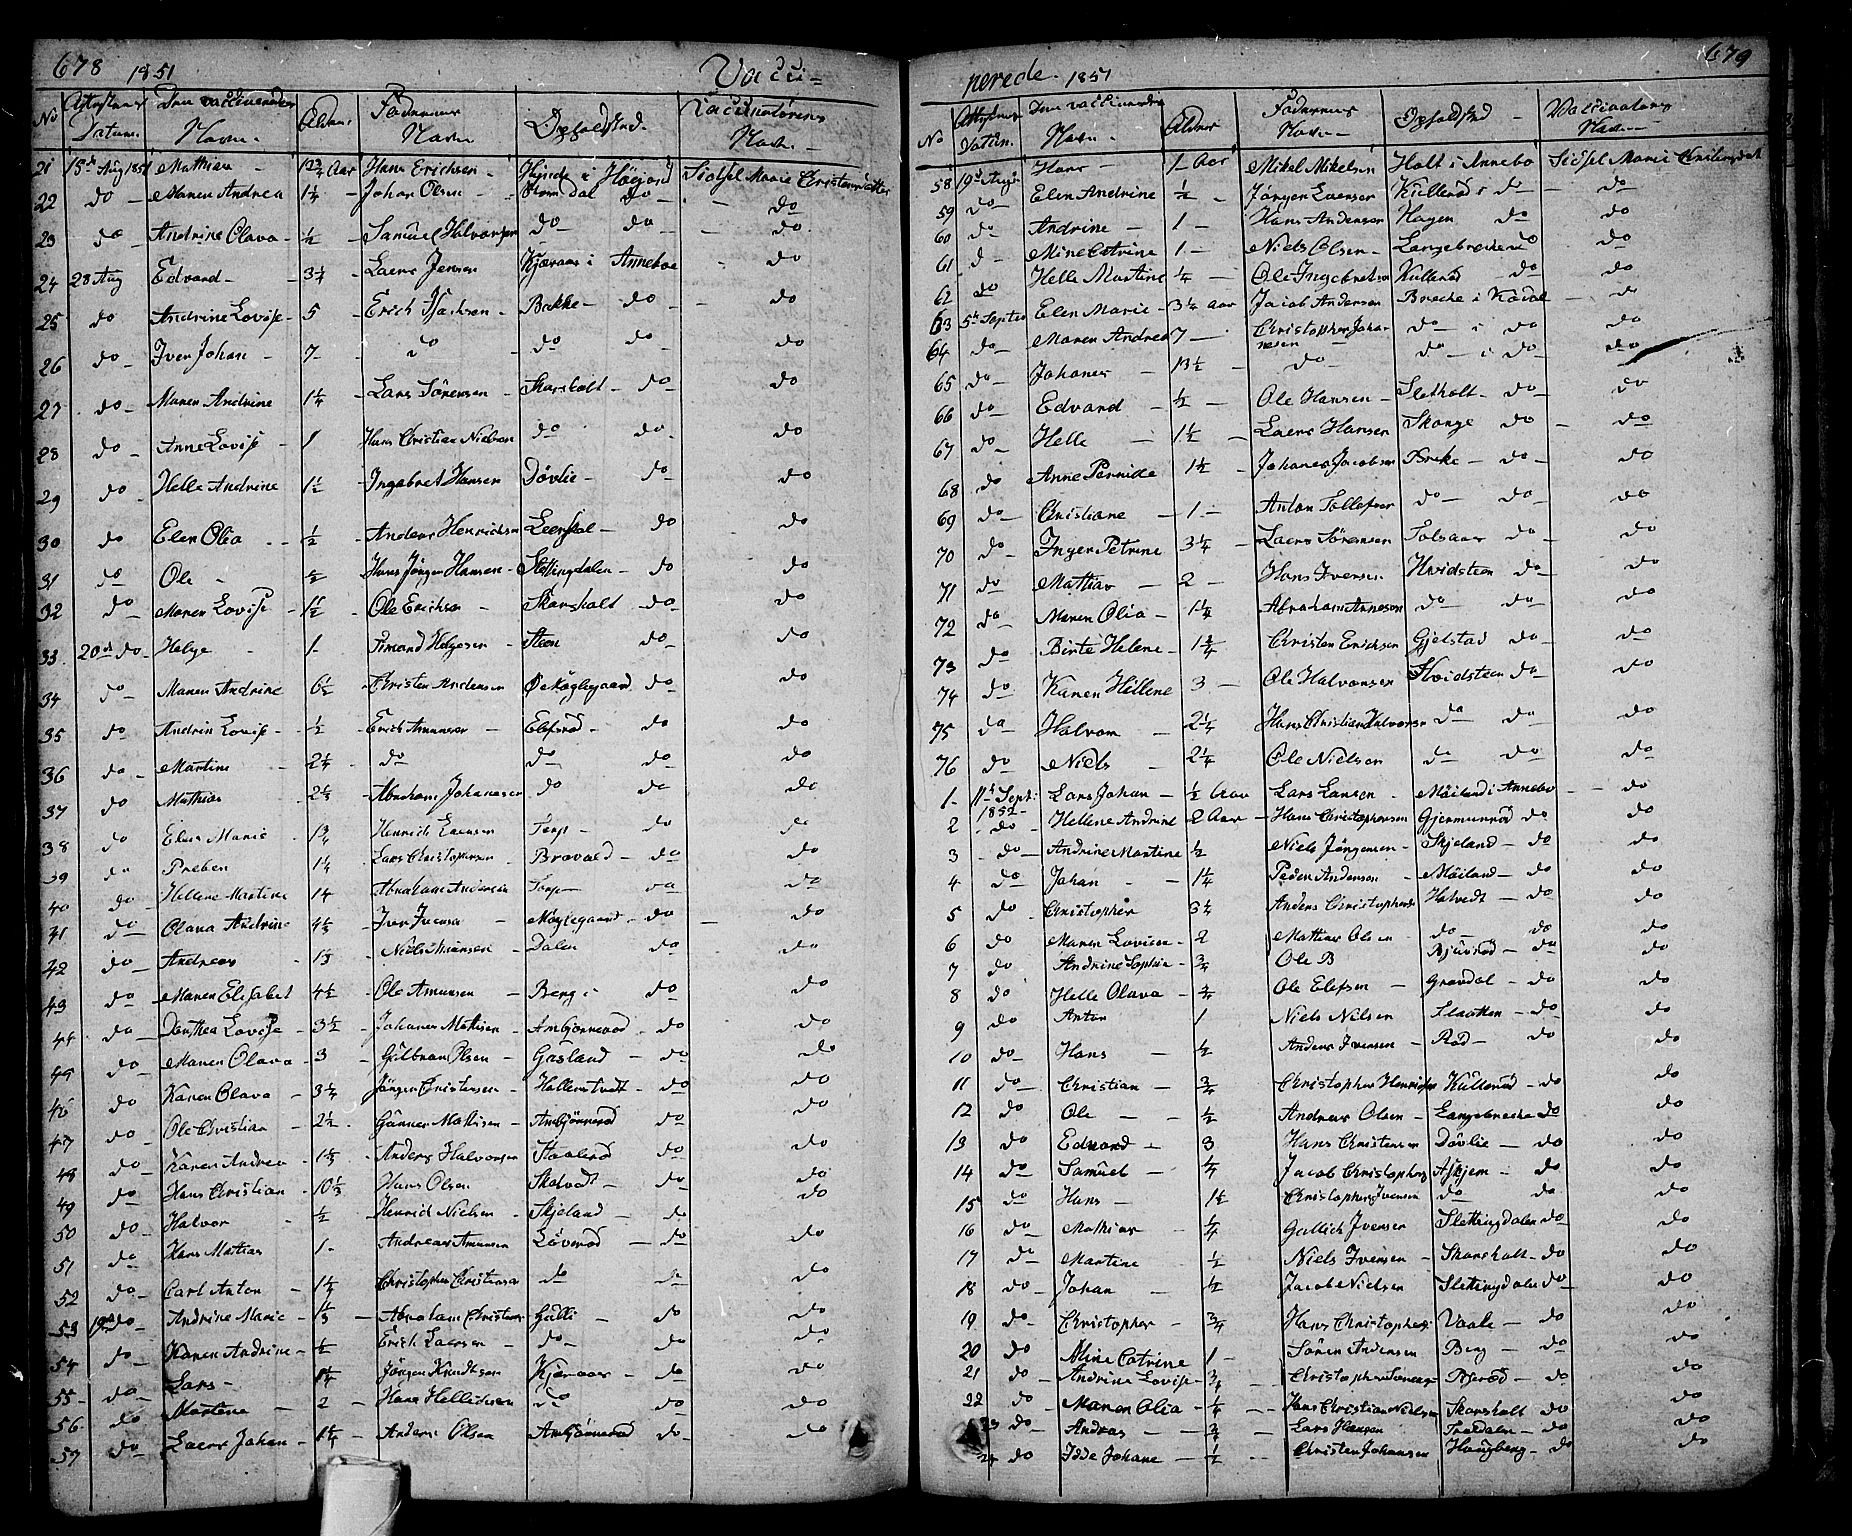 678 1851 Vacci-
No Attestens Datum. Den vaccineredes Navn. Alder. Faderens Navn Opholdsted. Vaccinatörens Navn.
21 15de Aug 1851 Mathias 1 3/4 Aar Hans Erichsen Höjord Siössel Marie Christensdatter
22 do Maren Andrea 1 1/4 Johan Olsen do do
23 do Andrine Olava 1/2 Samuel Halvorsen do do do
24 28 Aug Edvard 3 1/4 Laers Jensen Kjæraas i Anneboe do
25 do Andrine Lovise 5 Erich Isachsen Bakke do do
26 do Iver Johan 7 do do do do
27 do Maren Andrine 1 1/4 Lars Sörensen Skarsholt do do
28 do Anne Lovise 1 Hans Christian Nielsen do do do
29 do Helle Andrine 1 1/2 Ingebret Hansen Dövlie do do
30 do Elen Olia 1/2 Anders Henrichsen do do
31 do Ole 1/2 Hans Jörgen Hansen Slettingdalen do do
32 do Maren Lovise 1 1/2 Ole Erichsen Skarsholt do do
33 20de do Helge 1 Simond Helgesen Steen do do
34 do Maren Andrine 6 1/2 Christen Andersen do do
35 do Andrin Lovise 1/2 Erich Amunsen Elefsröd do do
36 do Martine 2 1/4 do do do do
37 do Mathias Abraham Johannesen do do do
38 do Elen Marie Henrich Laersen Torp do do
39 do Preben 1 1/4 Lars Christophersen Bravald do do
40 do Hellene Martine Abraham Andersen Torp do do
41 do Olava Andrine Iver Iversen Möglegaard do do
42 do Andreas Niels Amunsen Dalen do do
43 do Maren Elisabet 4 1/2 Ole Amunsen Berg i do do
44 do Dorthea Lovise 3 1/2 Johanes Mathisen Ambjönneröd do do
45 do Maren Olava 3 Gulbran Olsen Gasland do do
46 do Karen Olava 3 1/4 Jörgen Christensen Hallenstvedt do do
47 do Ole Christian 2 1/2 Gunner Mathisen Ambjönneröd do do
48 do Karen Andrea Anders Halvorsen Staaleröd do do
49 do Hans Christian Hans Olsen do do
50 do Halvor 1/2 Henrich Nielsen Skjeland do do
51 do Hans Mathias 1 Andreas Amunsen Löveröd do do
52 do Carl Anton 1 1/4 Christopher Christensen do do do
53 19de do Andrine Marie Abraham Christensen Gulli do do
54 do Karen Andrine 1/2 Erich Laersen do do do
55 do Lars 1 1/4 Jörgen Knudtsen Kjæraas do do
56 do Martine 2 Hans Hellichsen do do do
57 do Laers Johan 1 1/4 Anders Olsen Ambjönneröd do do
679 nerede. 1851
No Attestens Datum. Den vaccineredes Navn. Alder Faderens Navn Opholdsted Vaccinatörens Navn
58 19de Augu Hans 1 Aar Mikel Mikelsen Holt i Annebo Siössel Marie Christensdat
59 do Elen Andrine 1/2 Jörgen Laersen Kulleröd i do do
60 do Andrine 1 Hans Andersen Hagen do do
61 d Mine Catrine 1 Niels Olsen Langebrecke do do
62 do Helle Martine 1/4 Ole Ingebretsen Kulleröd do do
63 5te Septb Elen Marie 3 1/4 Aar Jacob Andersen Brecke i Kodal do
64 do Maren Andrea 7 Christopher Johannesen do i do do
65 do Johanes 13 1/2 do do i do do
66 do Edvard 1/2 Ole Hansen Sletholt do do
67 do Helle 1 1/2 Laers Hansen Skorge do do
68 do Anne Pernide 1 1/2 Johanes Jacobsen Breke do do
69 do Christiane 1 Anton Tollefsen do do do
70 do Inger Petrine 3 1/4 Laers Sörensen Tolsaas do do
71 do Mathias 2 Hans Iversen Hvidsteen do do
72 do Maren Olia 1 1/4 Abraham Arnesen do do do
73 do Birte Helene Christen Erichsen Gjelstad do do
74 do Karen Hellene 3 Ole Halvorsen Hvidsteen do do
75 do Halvor 2 1/4 Hans Christian Halvorsen do do do
76 do Niels 2 1/4 Ole Nielsen do do do
1 11te Sept. 1852 Lars Johan 1/2 Aar Lars Larsen Möiland i Annebo do
2 do Hellene Andrine 2 Aar Hans Christophersen Gjermunröd do do
3 do Andrine Martine 1/2 Niels Jörgensen Skjeland do do
4 do Johan 1 1/4 Peder Andersen Möiland do do
5 do Christopher 3 1/4 Anders Christophers Hotvedt do do
6 do Maren Lovise 2 Mathias Olsen do do do
7 do Andrine Sophie 3/4 Ole B Bjueröd do do
8 do Helle Olava 3/4 Ole Elefsen Gravdal do do
9 do Anton 1 Niels Nilsen Flaatten do do
10 do Hans 1/2 Anders Iversen Röd do do
11 do Christian 3/4 Christopher Henrichsen Kulleröd do do
12 do Ole 1/2 Andreas Olsen Langebrecke do do
13 do Edvard 3 Hans Christensen Dövlie do do
14 do Samuel 1/4 Jacob Christophers Askjem do do
15 do Hans 1 1/2 Christopher Iversen do do do
16 do Mathias 1/4 Gullich Iversen Slettingdalen do do
17 do Martine 1/2 Niels Iversen Skarsholt do do
18 do Johan 1/2 Jacob Nielsen Slettingdalen do do
19 do Christopher 3/4 Hans Christophers Vaale do do
20 do Mine Catrine 1 Sören Andersen Berg do do
21 do Andrine Lovise 3/4 Christopher Bjeröd do do
22 do Maren Olia 1/4 Hans Christian Nielsen Skarsholt do do
23 do Andreas 3/4 Lars Hansen Trædalen do do
24 do Idde Johane 1/2 Christen Johansen Haugberg do do